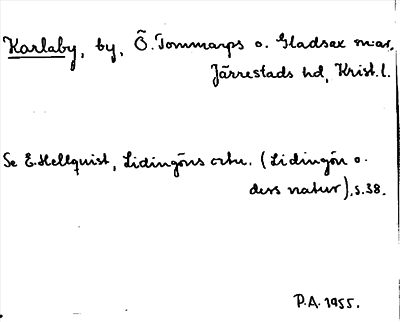 Karlaby, by, Ö. Tommarps o. Gladsax m:ar,
Järrestads hd, Krist. l.
Se E. Hellquist, Lidingöns ortn. (Lidingön o.
ders natur), s. 38.
P.A. 1955.